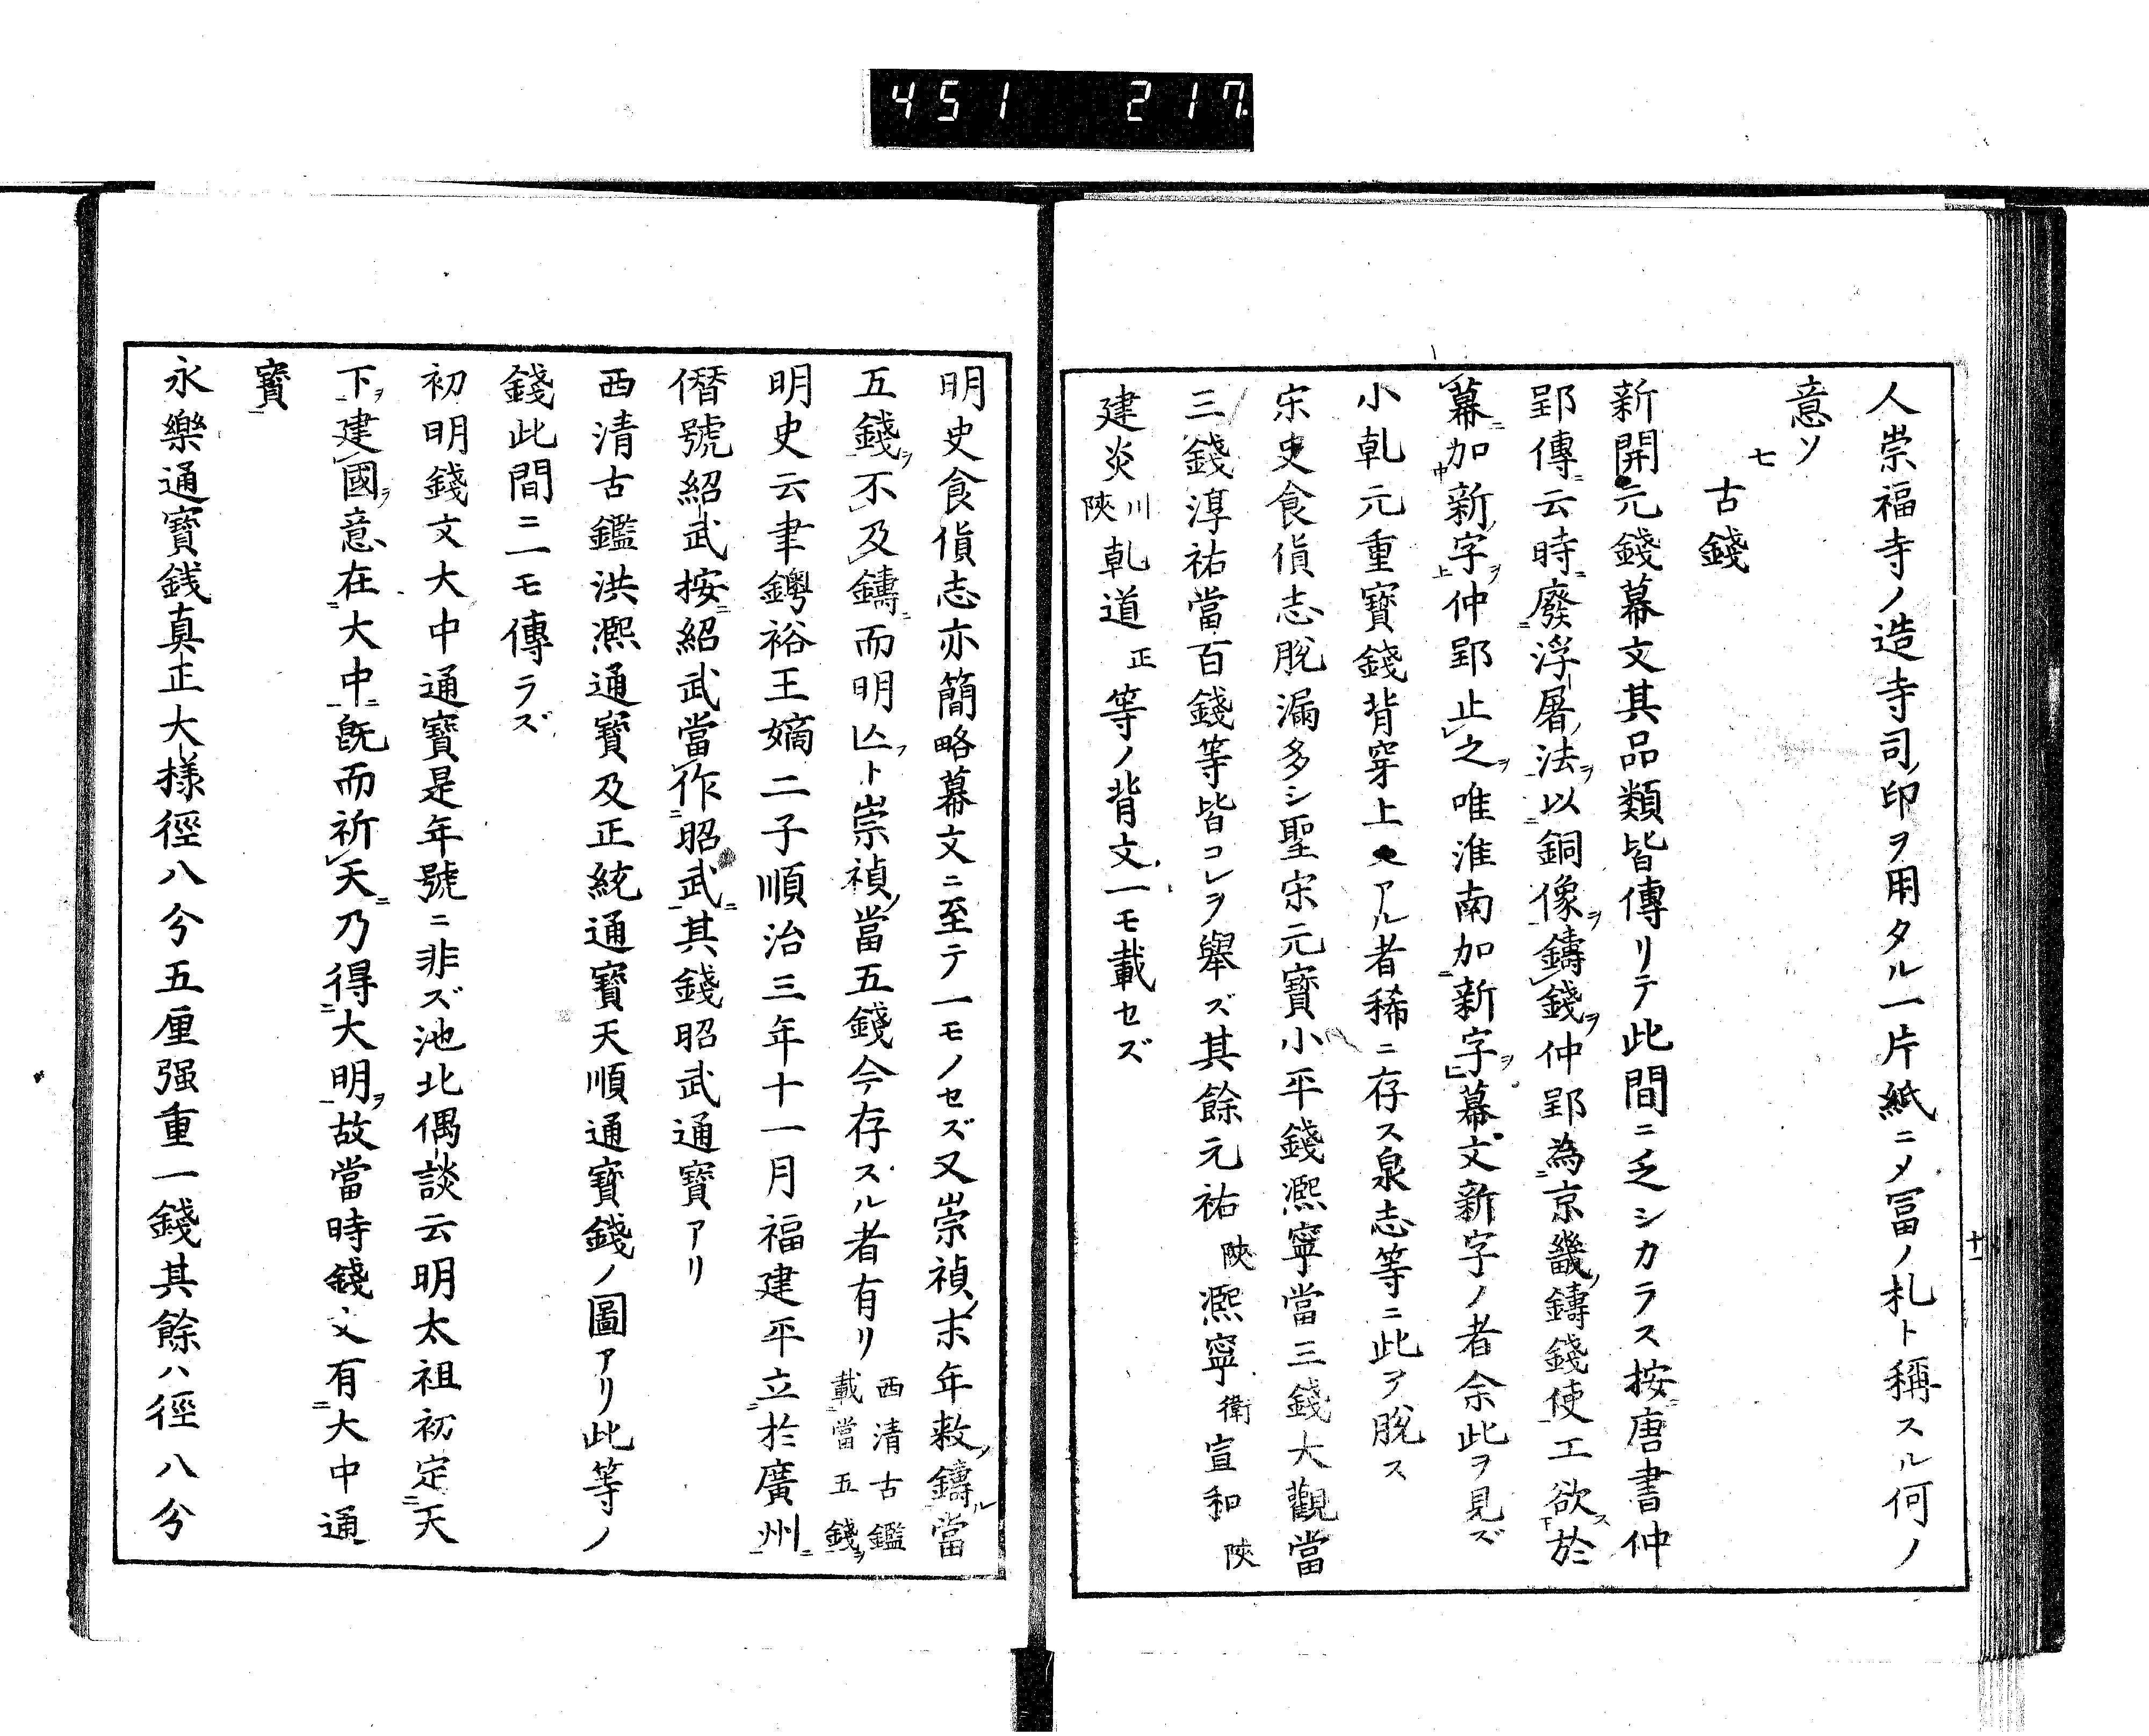 451 217
十一
人崇福寺ノ造寺司印ヲ用タル一片紙ニメ冨ノ札ト稱スル何ノ
意ソ
七
古錢
新開元錢幕文其品類皆傳リテ此間ニ乏シカラス按唐書仲
郢傳云時廢浮屠法以銅像鑄錢仲郢為京畿鑄錢使工欲於
幕加新字仲郢止之唯淮南加新字幕文新字ノ者余此ヲ見ズ
小乹元重寶錢背穿上アル者稀ニ存ス泉志等ニ此ヲ脫ス
宋史食貨志脫漏多シ聖宋元寶小平錢熈寧當三錢大觀當
三錢淳祐當百錢等皆コレヲ舉ズ其餘元祐陝熈寧衛宣和陝
建炎川陝乹道正等ノ背文一モ載セズ
明史食貨志亦簡略幕文ニ至テ一モノセズ又崇禎末年敕鑄當
五錢不及鑄而明亾ト崇禎當五錢今存スル者有リ西清古鑑載當五錢
明史云聿鐭裕王嫡二子順治三年十一月福建平立於廣州
僭號紹武按紹武當作昭武其錢昭武通寶アリ
西清古鑑洪熈通寶及正統通寶天順通寶錢ノ圖アリ此等ノ
錢此間ニ一モ傳ラズ
初明錢文大中通寶是年號ニ非ズ池北偶談云明太祖初定天
下建國意在大中既而祈天乃得大明故當時錢文有大中通
寶
永樂通寶銭真正大様徑八分五厘强重一錢其餘ハ徑八分